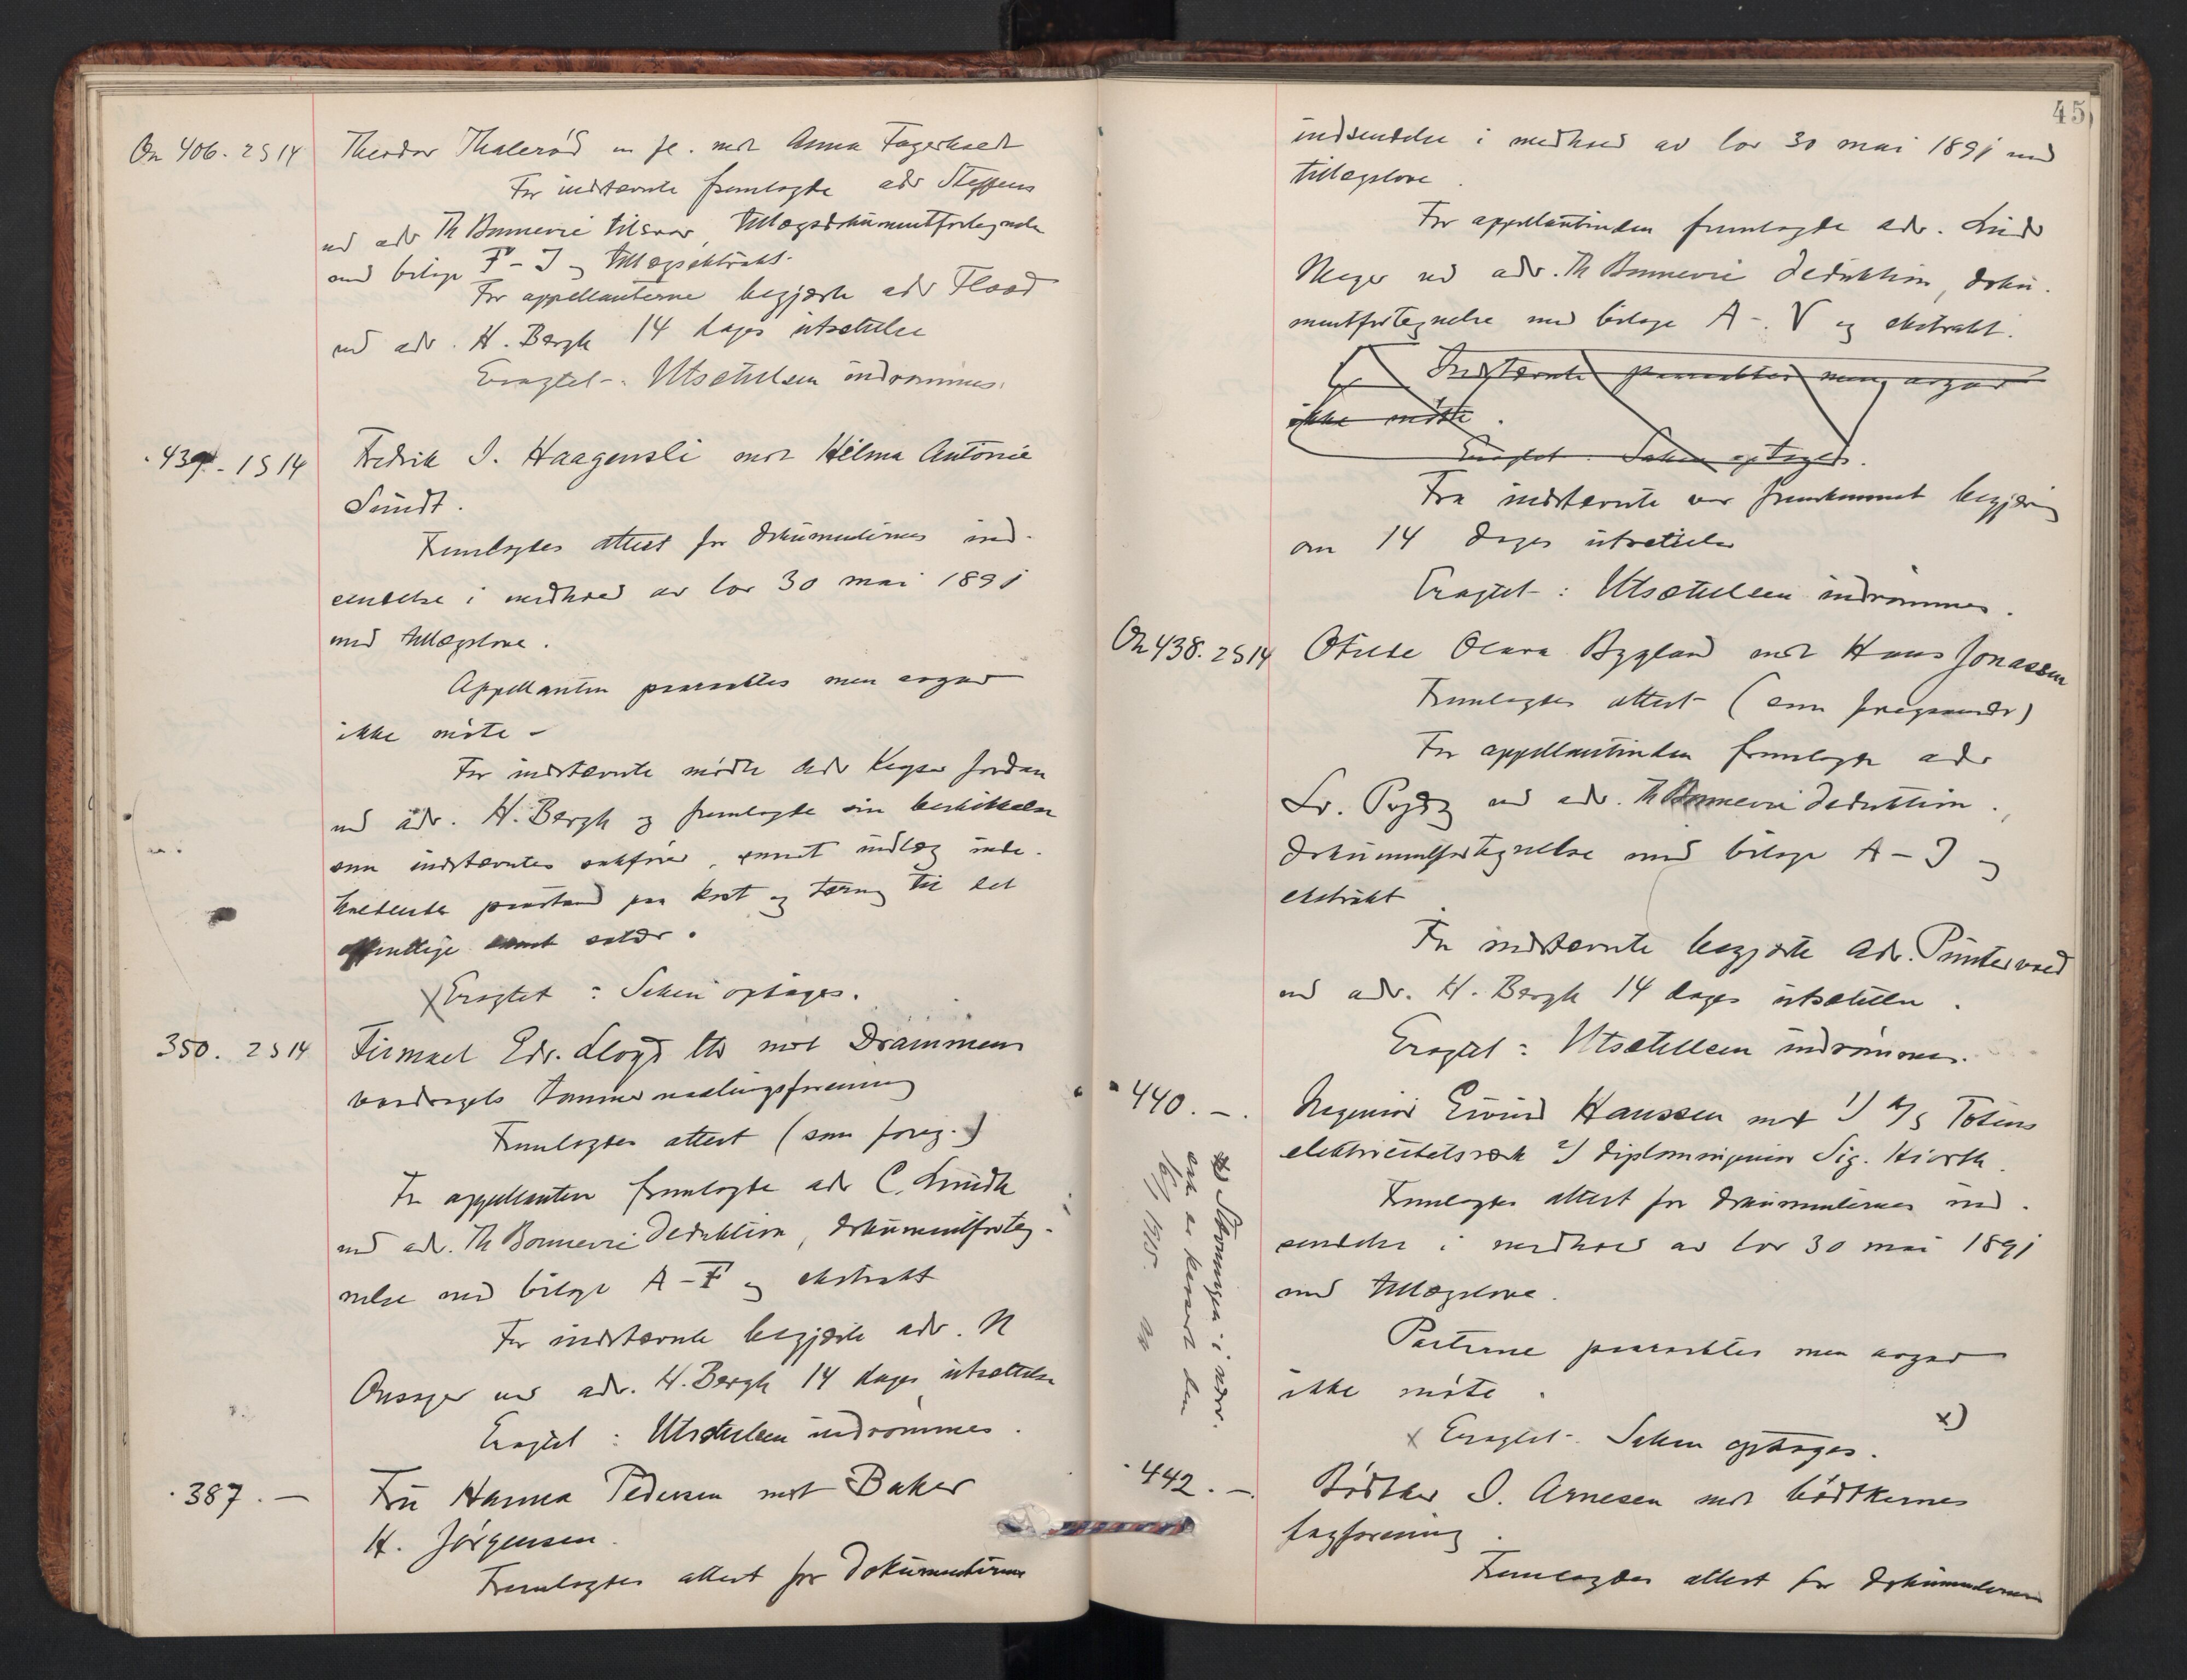 On 406. 2 S 14 Theodor Thalerød m fl. mot Anna Fagerholdt
For indstevnte fremlagte adv Steffens
ved adv Th Bonnevie tilsvar, tillægsdokumentfortegnelse
med bilage F - J og tillægsekstrakt.
For appellanterne begjærte adv Flood
ved adv. H. Bergh 14 dages utsættelse
Eragtet: Utsættelsen indrømmes.
439. 1 S 14 Fredrik I. Haagensli mot Hilma Antonie
Sundt.
Fremlagdes attest for dokumenternes ind-
sendelse i medhold av lov 30 mai 1891
med tillægslove.
Appellanten paaraabtes men avgav
ikke møte -
For indstevnte mødte adv Keyser Jordan
ved adv. H. Bergh og fremlagde sin beskikkelse
som indstevntes sakfører, samt indlæg inde-
holdende paastand paa kost og tæring til det
offentlige samt salær.
x Eragtet: Saken optages.
350. 2 S 14 Firmaet Edv. Lloyd ltd mot Drammens
vasdragets tømmermaalingsforening
Fremlagdes attest (som foreg.)
For appellanten fremlagde adv C. Lundh
ved adv. Th Bonnevie deduktion, dokumentforteg-
nelse med bilage A - F og ekstrakt
For indstevnte begjærte adv. N
Onsager ved adv. H. Bergh 14 dages utsættelse
Eragtet: Utsættelsen indrømmes.
387. — Fru Hanna Pedersen mot Baker
H. Jørgensen.
Fremlagdes attest for dokumenternes
45
indsendelse i medhold av lov 30 mai 1891 med
tillægslove.
For appellantinden fremlagde adv.
ved adv. Th Bonnevie deduktion, doku-
mentfortegnelse med bilage A - V og ekstrakt.
Indstevnte paaraabtes men avgav
ikke møte.
Eragtet: Saken optages.
Fra indstevnte var fremkommet begjæring
om 14 dages utsættelse
Eragtet: Utsættelsen indrømmes.
On 438. 2 S 14 Otilde Olava Bygland mot Hans Jonassen
Fremlagdes attest (som foregaaende)
For appellantinden fremlagde adv
ved adv. Th Bonnevie deduktion,
dokumentfortegnelse med bilage A - J og
ekstrakt
For indstevnte begjærte adv. Puntervold
ved adv. H. Bergh 14 dages utsættelse.
Eragtet: Utsættelsen indrømmes.
440. —. Ingeniør Eivind Hanssen mot 1) A/S Totens
elektricitetsverk 2) diplomingeniør Sig. Hiorth.
Fremlagdes attest for dokumenternes ind-
sendelse i medhold av lov 30 mai 1891
med tillægslove.
Parterne paaraabtes men avgav
ikke møte.
x Eragtet: Saken optages. x)
x) Stevningen i nærv.
sak er hævet den
16/1 1915.
442. —. Bødtker I. Arnesen mot bødtkernes
fagforening.
Fremlagdes attest for dokumenternes